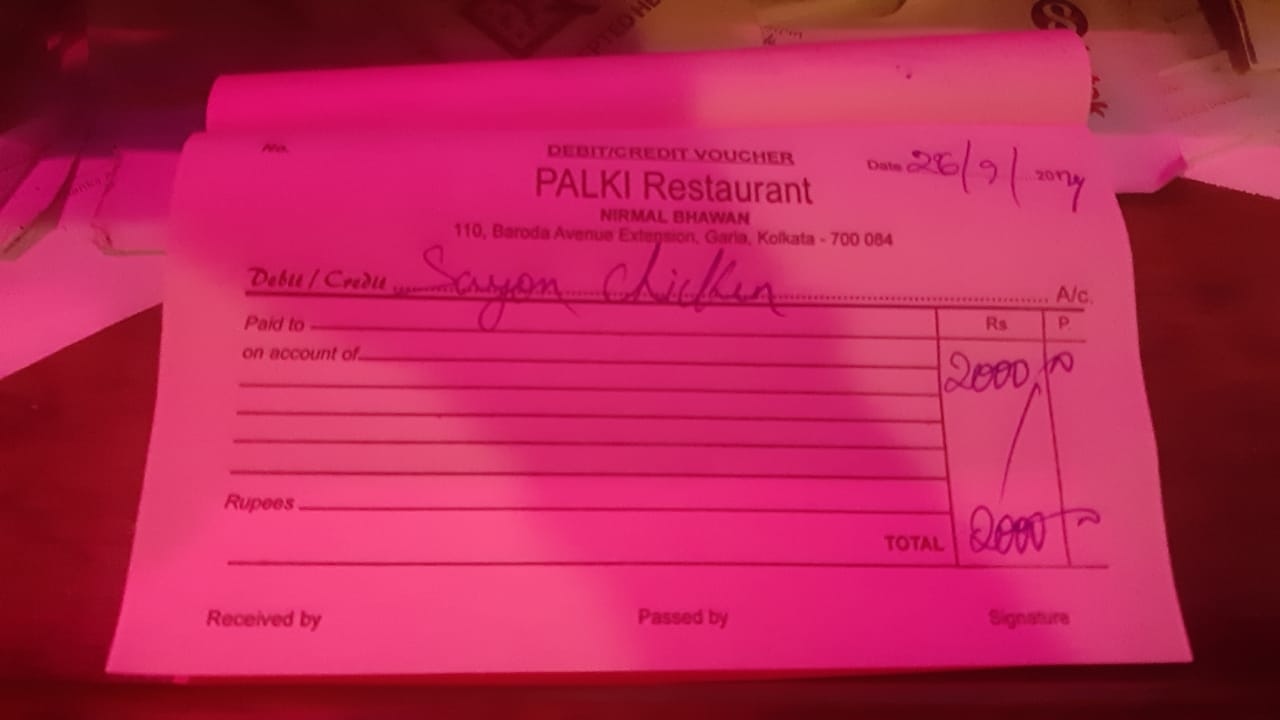 No.
DEBIT/CREDIT VOUCHER
Date 26/9/2024
PALKI Restaurant
NIRMAL BHAWAN
110, Baroda Avenue Extension, Garia, Kolkata - 700 084
Debit / Credit Sayon Chicken A/c.
Paid to Rs P.
on account of 2000
Rupees
TOTAL 2000
Received by Passed by Signature